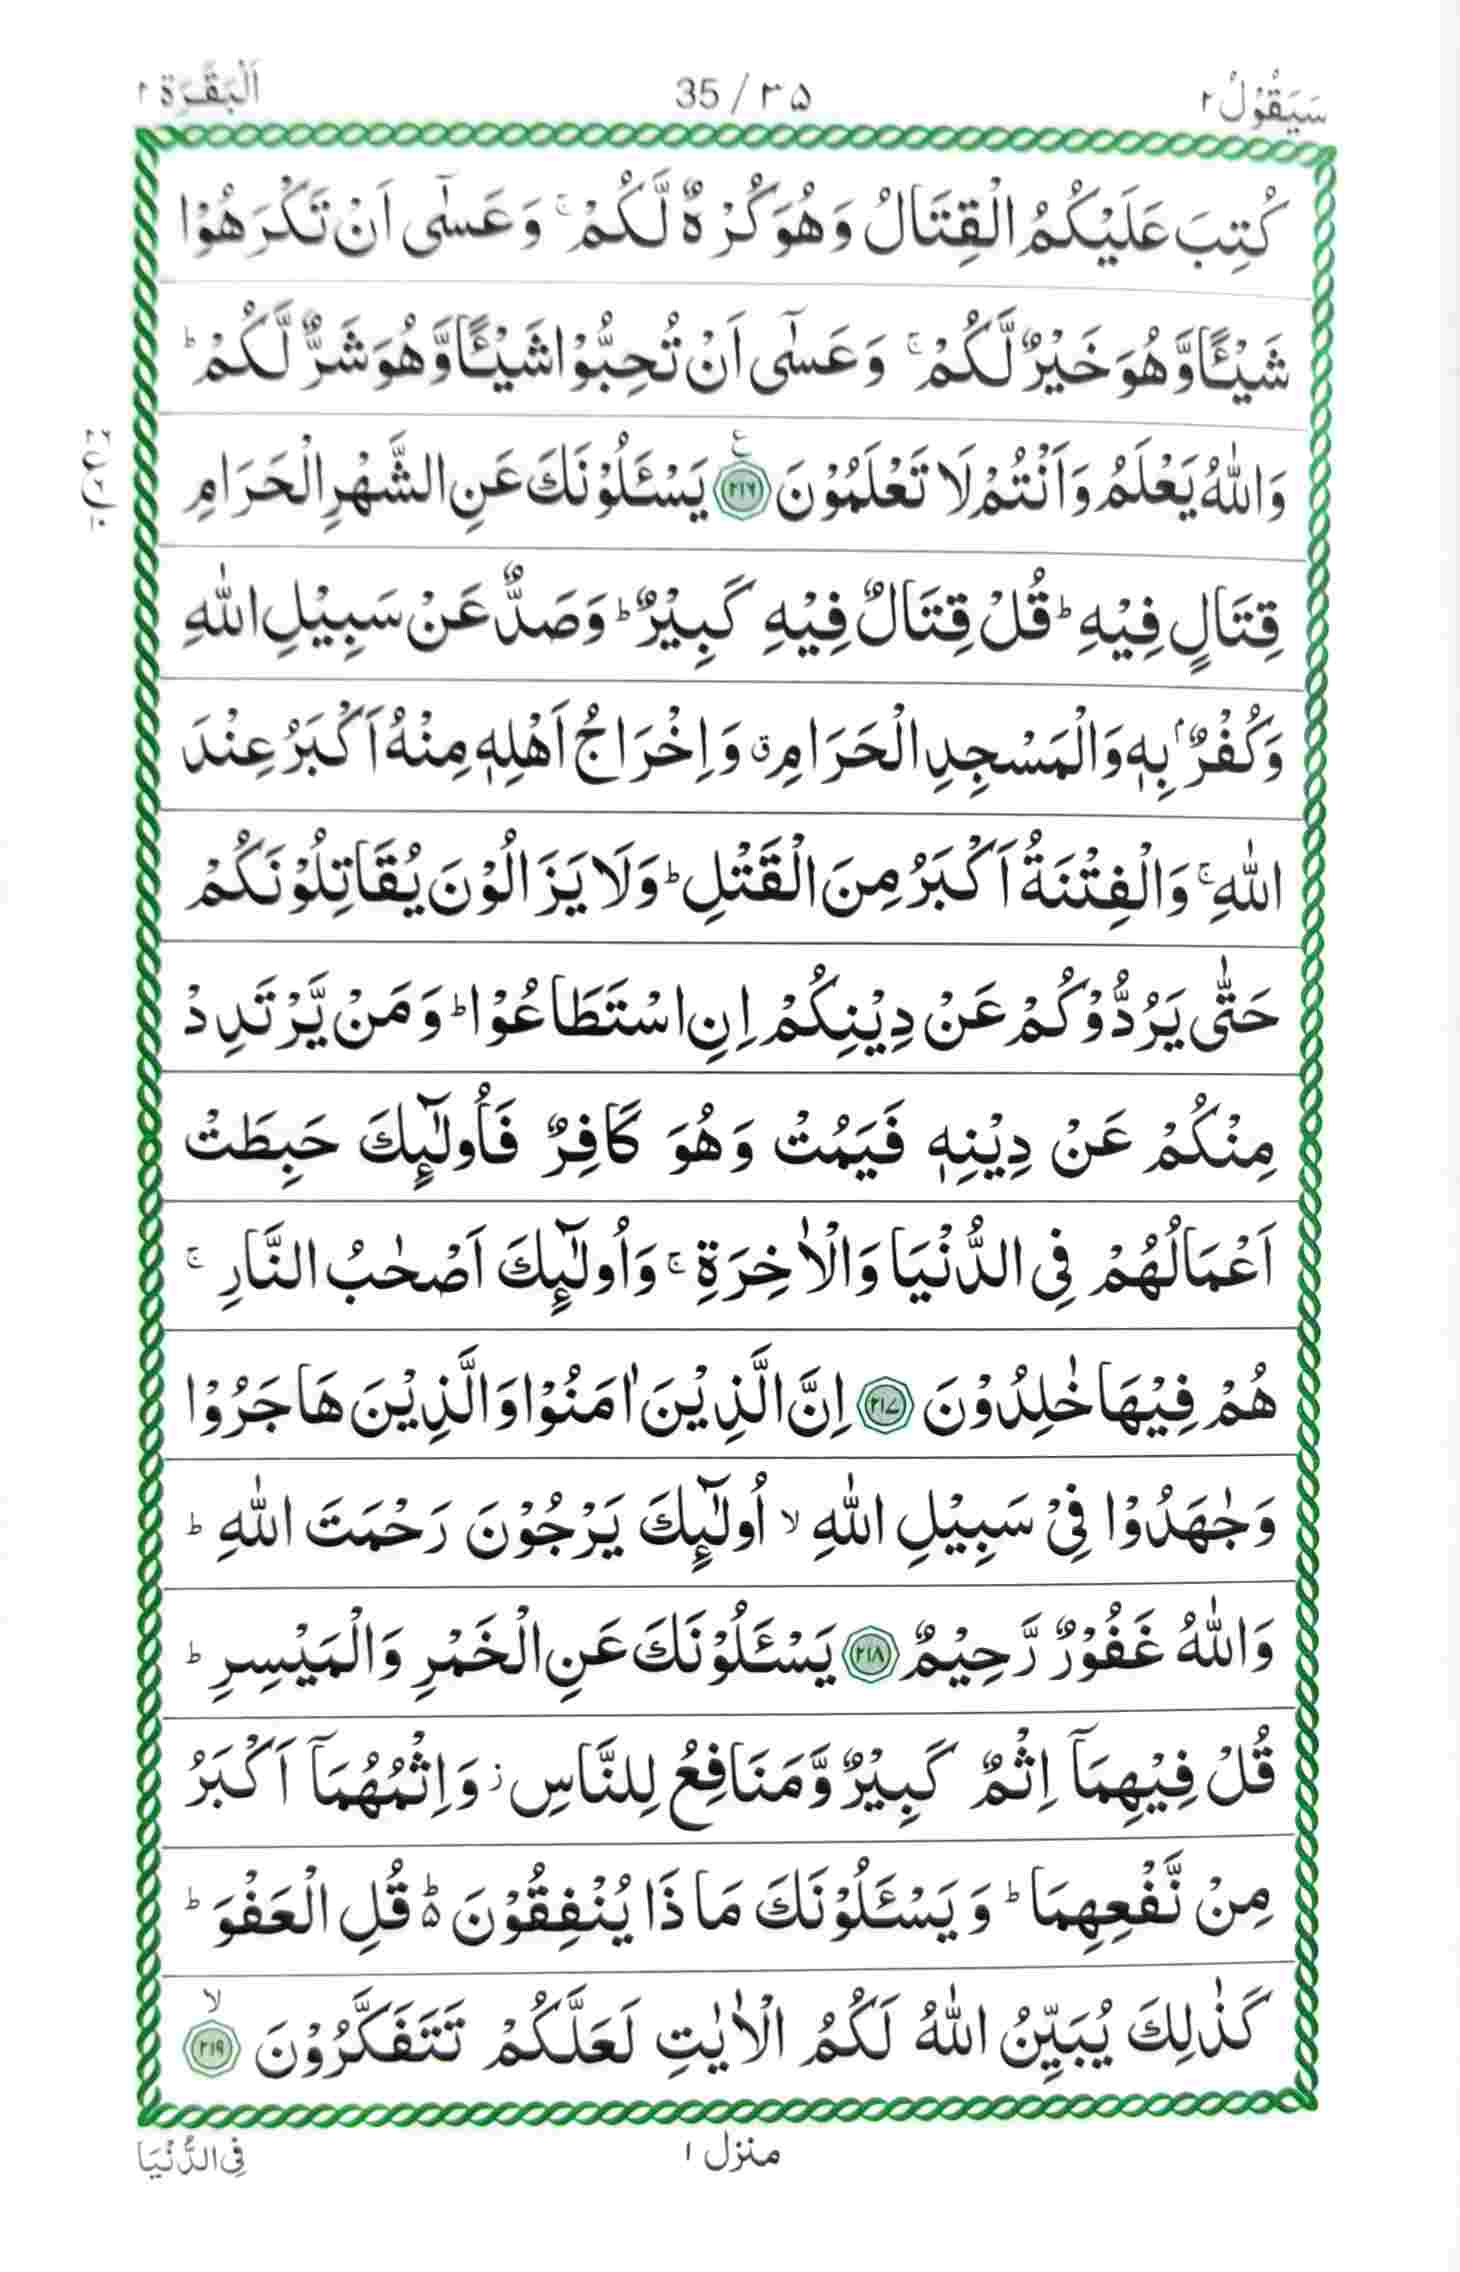 سَيَقُوْلُ ٢
35 / ٣٥
اَلْبَقَرَة ٢
كُتِبَ عَلَيْكُمُ الْقِتَالُ وَهُوَ كُرْهٌ لَّكُمْ ۚ وَعَسٰٓى اَنْ تَكْرَهُوْا
شَيْـًٔا وَّهُوَ خَيْرٌ لَّكُمْ ۚ وَعَسٰٓى اَنْ تُحِبُّوْا شَيْـًٔا وَّهُوَ شَرٌّ لَّكُمْ ؕ
وَاللّٰهُ يَعْلَمُ وَاَنْتُمْ لَا تَعْلَمُوْنَ ۝٢١٦ ع يَسْـَٔلُوْنَكَ عَنِ الشَّهْرِ الْحَرَامِ
قِتَالٍ فِيْهِ ؕ قُلْ قِتَالٌ فِيْهِ كَبِيْرٌ ؕ وَصَدٌّ عَنْ سَبِيْلِ اللّٰهِ
وَكُفْرٌۢ بِهٖ وَالْمَسْجِدِ الْحَرَامِ ۗ وَاِخْرَاجُ اَهْلِهٖ مِنْهُ اَكْبَرُ عِنْدَ
اللّٰهِ ۚ وَالْفِتْنَةُ اَكْبَرُ مِنَ الْقَتْلِ ؕ وَلَا يَزَالُوْنَ يُقَاتِلُوْنَكُمْ
حَتّٰى يَرُدُّوْكُمْ عَنْ دِيْنِكُمْ اِنِ اسْتَطَاعُوْا ؕ وَمَنْ يَّرْتَدِدْ
مِنْكُمْ عَنْ دِيْنِهٖ فَيَمُتْ وَهُوَ كَافِرٌ فَاُولٰٓئِكَ حَبِطَتْ
اَعْمَالُهُمْ فِى الدُّنْيَا وَالْاٰخِرَةِ ۚ وَاُولٰٓئِكَ اَصْحٰبُ النَّارِ ۚ
هُمْ فِيْهَا خٰلِدُوْنَ ۝٢١٧ اِنَّ الَّذِيْنَ اٰمَنُوْا وَالَّذِيْنَ هَاجَرُوْا
وَجٰهَدُوْا فِىْ سَبِيْلِ اللّٰهِ ۙ اُولٰٓئِكَ يَرْجُوْنَ رَحْمَتَ اللّٰهِ ؕ
وَاللّٰهُ غَفُوْرٌ رَّحِيْمٌ ۝٢١٨ يَسْـَٔلُوْنَكَ عَنِ الْخَمْرِ وَالْمَيْسِرِ ؕ
قُلْ فِيْهِمَآ اِثْمٌ كَبِيْرٌ وَّمَنَافِعُ لِلنَّاسِ ز وَاِثْمُهُمَآ اَكْبَرُ
مِنْ نَّفْعِهِمَا ؕ وَيَسْـَٔلُوْنَكَ مَاذَا يُنْفِقُوْنَ ؕ۬ قُلِ الْعَفْوَ ؕ
كَذٰلِكَ يُبَيِّنُ اللّٰهُ لَكُمُ الْاٰيٰتِ لَعَلَّكُمْ تَتَفَكَّرُوْنَ ۙ ۝٢١٩
منزل ١
فِى الدُّنْيَا